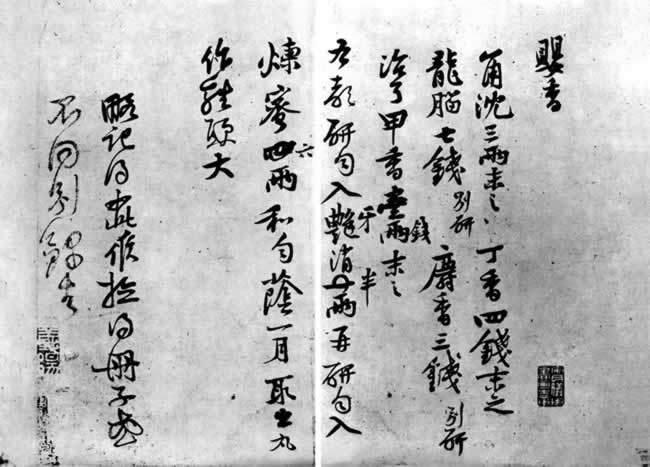 嬰香
角沈三兩末之丁香四錢末之
龍腦七錢別研麝香三錢別研
治了甲香壹兩錢末之
右都研勻入牙消半兩再研勻入
煉蜜六兩和勻蔭一月取出丸
作雞頭大
略記得如此候檢得冊子或
不同別錄去